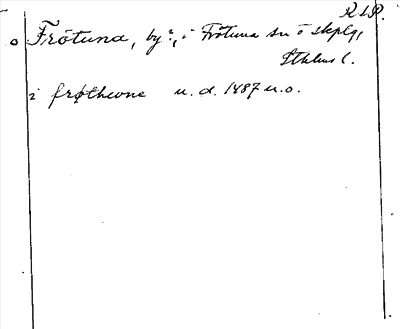 RAP.
Frötuna, by?, i Frötuna sn o skplg,
Sthlms l.
i frøthcone u. d. 1487 u. o.